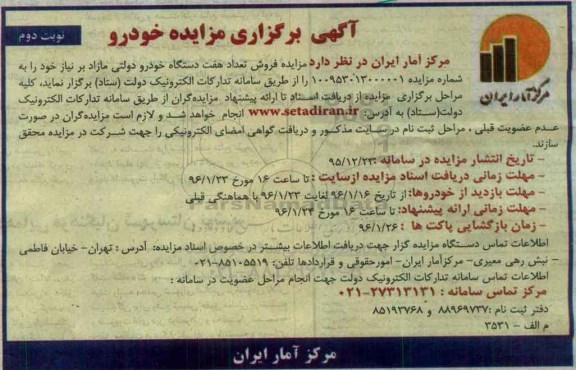 آگهی برگزاری مزایده خودرو
نوبت دوم
مرکز آمار ایران
مرکز آمار ایران در نظر دارد مزایده فروش تعداد هفت دستگاه خودرو دولتی مازاد بر نیاز خود را به
شماره مزایده ۱۰۰۹۵۳۰۱۳۰۰۰۰۰۱ را از طریق سامانه تدارکات الکترونیک دولت (ستاد) برگزار نماید، کلیه
مراحل برگزاری مزایده از دریافت اسناد تا ارائه پیشنهاد مزایده‌گران از طریق سامانه تدارکات الکترونیک
دولت(ستاد) به آدرس: www.setadiran.ir انجام خواهد شد و لازم است مزایده‌گران در صورت
عدم عضویت قبلی ، مراحل ثبت نام در سایت مذکور و دریافت گواهی امضای الکترونیکی را جهت شرکت در مزایده محقق
سازند.
- تاریخ انتشار مزایده در سامانه :۹۵/۱۲/۲۳
- مهلت زمانی دریافت اسناد مزایده ازسایت : تا ساعت ۱۶ مورخ ۹۶/۱/۲۳
- مهلت بازدید از خودروها: از تاریخ ۹۶/۱/۱۶ لغایت ۹۶/۱/۲۳ با هماهنگی قبلی
- مهلت زمانی ارائه پیشنهاد: تا ساعت ۱۶ مورخ ۹۶/۱/۲۳
- زمان بازگشایی پاکت ها : ۹۶/۱/۲۶
اطلاعات تماس دستگاه مزایده گزار جهت دریافت اطلاعات بیشتر در خصوص اسناد مزایده: آدرس : تهران- خیابان فاطمی
- نبش رهی معیری- مرکزآمار ایران- امورحقوقی و قراردادها تلفن: ۸۵۱۰۵۵۱۹-۰۲۱
اطلاعات تماس سامانه تدارکات الکترونیک دولت جهت انجام مراحل عضویت در سامانه :
مرکز تماس سامانه : ۲۷۳۱۳۱۳۱-۰۲۱
دفتر ثبت نام :۸۸۹۶۹۷۳۷ و ۸۵۱۹۳۷۶۸
م الف - ۳۵۳۱
مرکز آمار ایران